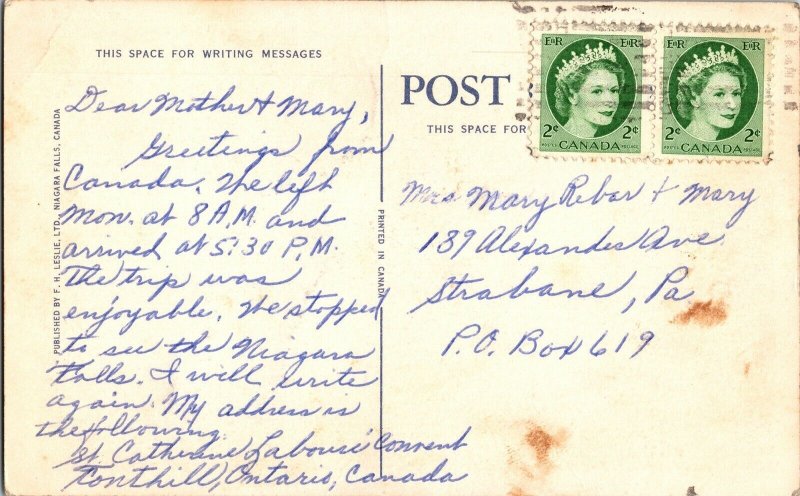 THIS SPACE FOR WRITING MESSAGES
Dear Mother & Mary,
Greetings from
Canada. We left
Mon. at 8 A.M. and
arrived at 5:30 P.M.
The trip was
enjoyable. We stopped
to see the Niagara
Falls. I will write
again. My address is
the following.
St. Catherine Labouré Convent
Fonthill, Ontario, Canada
PUBLISHED BY F. H. LESLIE, LTD., NIAGARA FALLS, CANADA
PRINTED IN CANADA
POST
THIS SPACE FOR
E II R E II R
2¢ 2¢
POSTES POSTAGE
CANADA
E II R E II R
2¢ 2¢
POSTES POSTAGE
CANADA
Mrs Mary Rebar & Mary
139 Alexander Ave
Strabane, Pa
P.O. Box 619